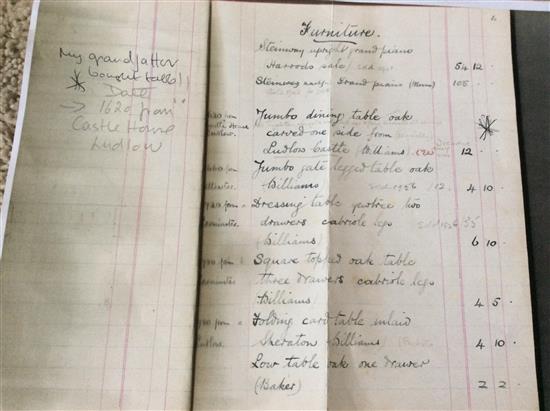 My grandfather
bought table!!
Date
→ 1620 from
Castle House
Ludlow
Furniture.
Steinway upright grand piano
Harrods sale 54 12 .
Steinway Grand piano 105
Jumbo dining table oak
carved one side from
Ludlow Castle (Williams) 12 .
Jumbo gate legged table oak
Williams Sold 1956 / 12 . 4 10 .
Dressing table two
drawers cabriole legs
(Williams) 6 10 .
Square topped oak table
three drawers cabriole legs
Williams 4 5 .
Folding card table inlaid
Ludlow. Sheraton Williams 4 10 .
Low table oak one drawer
(Baker) 2 2 .